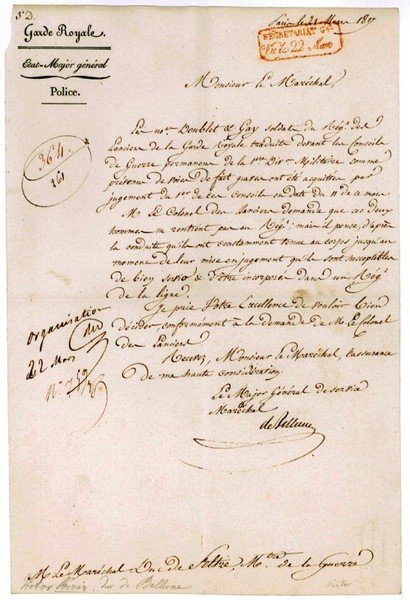 3e D.
Garde Royale.
Etat-Major général
Police.
Paris le 21 Mars 1817
SECRETARIAT Gal
Vu le 22 Mars
364
261
Monsieur le Maréchal
Les només Doublet & Gay soldats du Régt des
Lanciers de la Garde Royale traduits devant les Conseils
de Guerre permanens de la 1ere Don Militaire comme
prévenus de voies de fait graves ont été acquittés par
jugement du 1er de ces conseils en date du 11 de ce mois
M. Le Colonel des Lanciers demande que ces deux
hommes ne rentrent pas au Régt; mais il pense, d'après
la conduite qu'ils ont constamment tenue au corps jusqu'au
moment de leur mise en jugement qu'ils sont susceptibles
de bien servir & d'être incorporés dans un Régt
de la ligne.
Je prie Votre Excellence de vouloir bien
décider conformément à la demande de M. Le Colonel
des Lanciers
Recevez, Monsieur le Maréchal, l'assurance
de ma haute considération.
Le Major Général de service
Maréchal
de Bellune
Organisation
22 Mars
M. Le Maréchal Duc de Feltre, Mtre de la Guerre
Victor Perrin, duc de Bellune
Victor